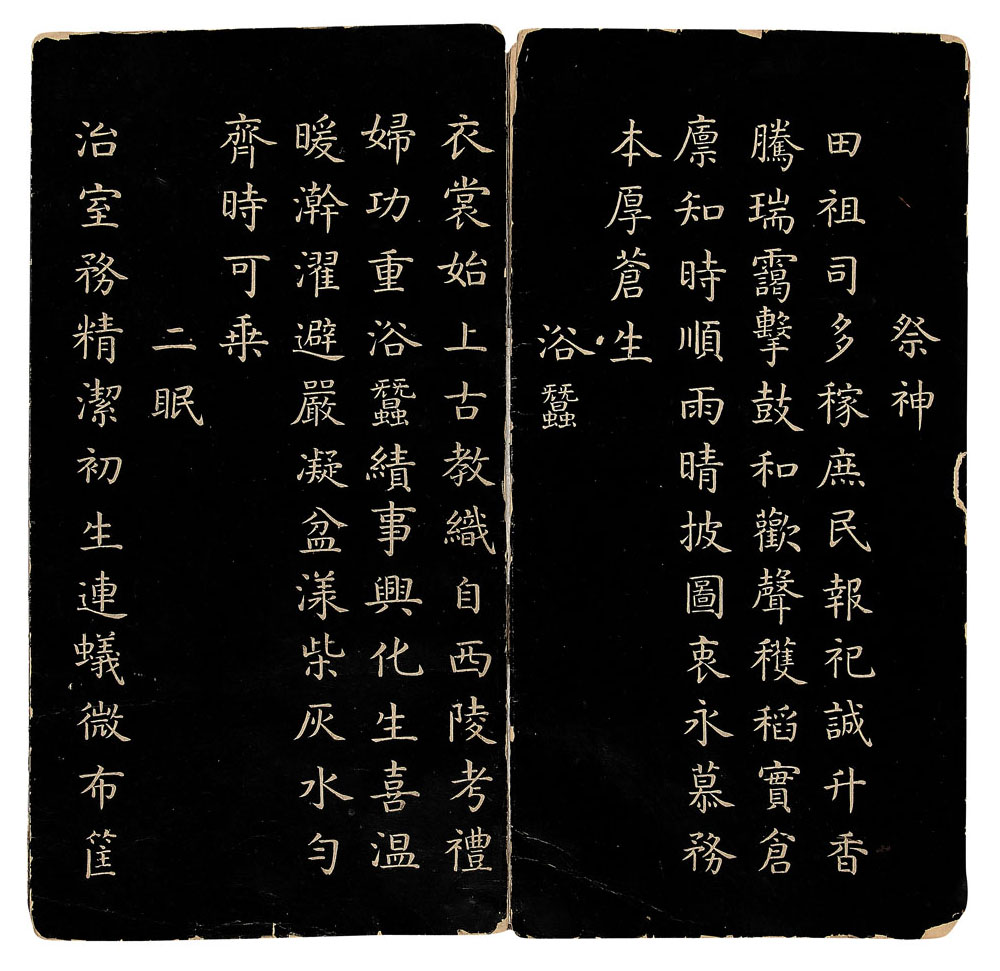 祭神
田祖司多稼庶民報祀誠升香
騰瑞靄擊鼓和歡聲穫稻實倉
廪知時順雨晴披圖衷永慕務
本厚蒼生
浴蠶
衣裳始上古教織自西陵考禮
婦功重浴蠶績事興化生喜温
暖澣濯避嚴凝盆漾柴灰水勻
齊時可乗
二眠
治室務精潔初生連蟻微布筐